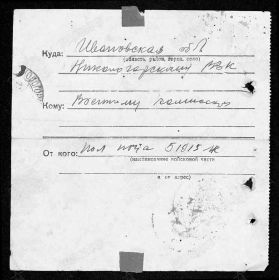 Куда: Ивановская обл
(область, район, город, село)
Никологорский РВК
Кому: Военному комиссару
От кого: Пол почта 51915 ж
(наименование войсковой части
и ее адрес)